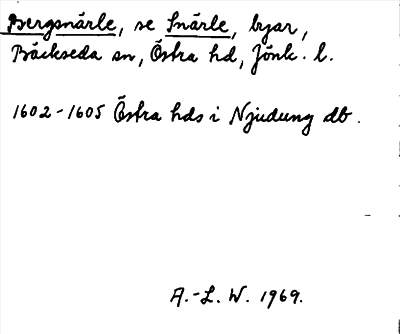 Bergsnärle, se Snärle, byar,
Bäckseda sn, Östra hd, Jönk. l.
1602-1605 Östra hds i Njudung db.
A.-L. W. 1969.